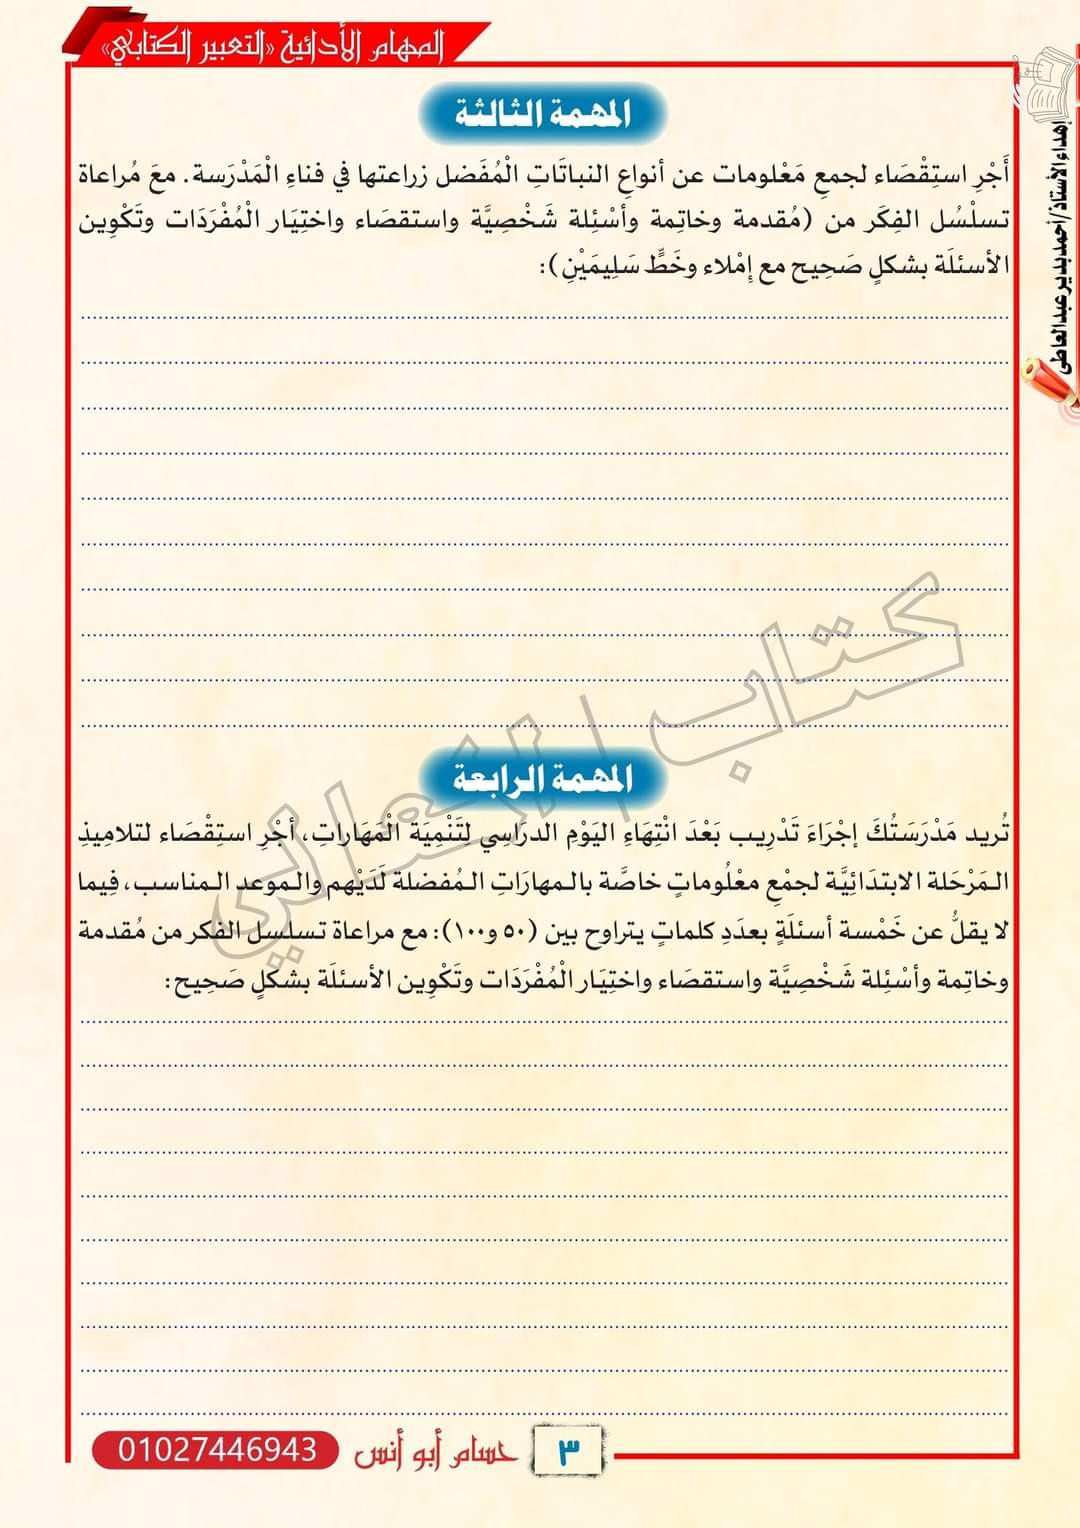 المهام الأدائية «التعبير الكتابي»
إهداء الأستاذ/أحمد بدير عبد العاطى
المهمة الثالثة
أَجْرِ استِقْصَاء لجمعِ مَعْلومات عن أنواعِ النباتَاتِ الْمُفَضل زراعتها في فناءِ الْمَدْرَسة. معَ مُراعاة
تسلْسُل الفِكَر من (مُقدمة وخاتِمة وأسْئِلة شَخْصِيَّة واستقصَاء واختِيَار الْمُفْرَدَات وتَكْوِين
الأسئلَة بشكلٍ صَحِيح مع إِمْلاء وخَطٍّ سَلِيمَيْنِ):
كتاب / المعالي
المهمة الرابعة
تُريد مَدْرَسَتُكَ إجْرَاءَ تَدْرِيب بَعْدَ انْتِهَاءِ اليَوْمِ الدرَاسِي لِتَنْمِيَة الْمَهَاراتِ، أجْرِ استِقْصَاء لتلامِيذِ
المَرْحَلة الابتدَائِيَّة لجمْعِ معْلُوماتٍ خاصَّة بالمهارَاتِ المُفضلة لَدَيْهم والموعد المناسب، فِيما
لا يقلُّ عن خَمْسة أسئلَةٍ بعدَدِ كلماتٍ يتراوح بين (٥٠ و١٠٠): مع مراعاة تسلسل الفكر من مُقدمة
وخاتِمة وأسْئِلة شَخْصِيَّة واستقصَاء واختِيَار الْمُفْرَدَات وتَكْوِين الأسئلَة بشكلٍ صَحِيح:
٣
حسام أبو أنس
01027446943